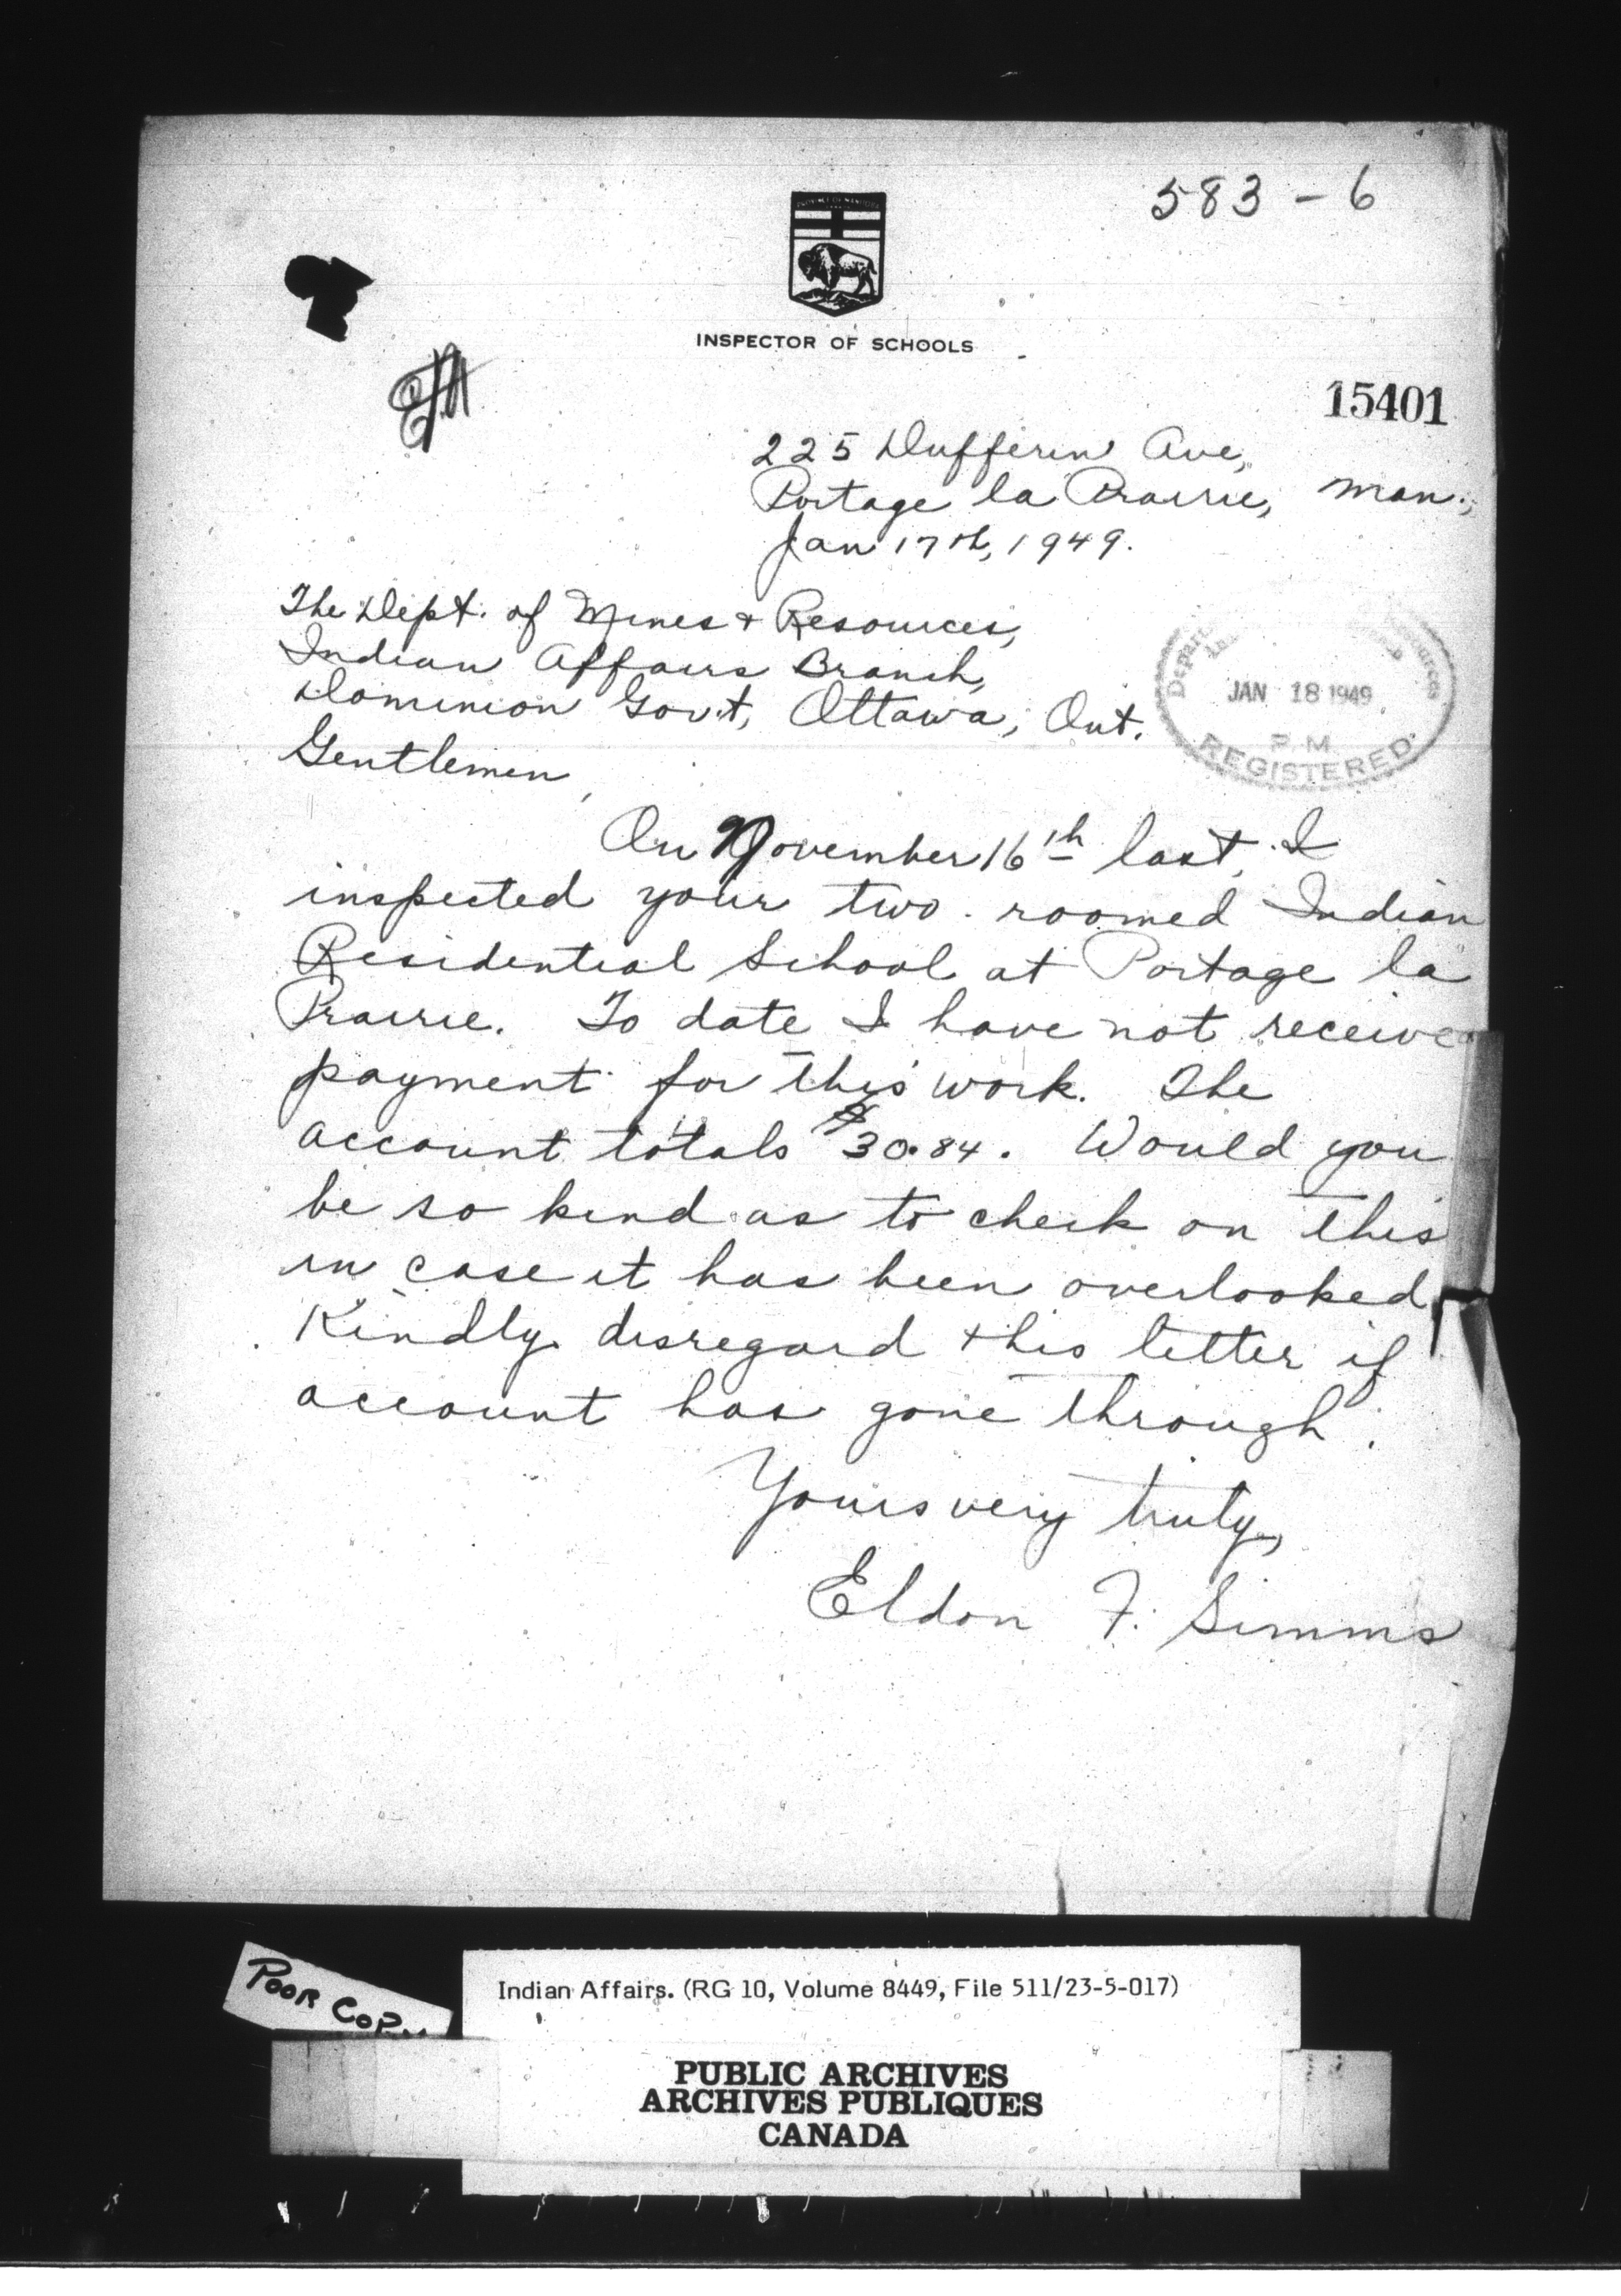 583 - 6
PROVINCE OF MANITOBA
INSPECTOR OF SCHOOLS
15401
225 Dufferin Ave,
Portage la Prairie, Man.,
Jan 17th, 1949.
The Dept. of Mines & Resources,
Indian Affairs Branch,
Dominion Gov't, Ottawa, Ont.
JAN 18 1949
P.M.
REGISTERED
Gentlemen,
On November 16th last, I
inspected your two-roomed Indian
Residential School at Portage la
Prairie. To date I have not received
payment for this work. The
account totals $30.84. Would you
be so kind as to check on this
in case it has been overlooked.
Kindly disregard this letter if
account has gone through.
Yours very truly,
Eldon F. Simms
POOR COPY
Indian Affairs. (RG 10, Volume 8449, File 511/23-5-017)
PUBLIC ARCHIVES
ARCHIVES PUBLIQUES
CANADA